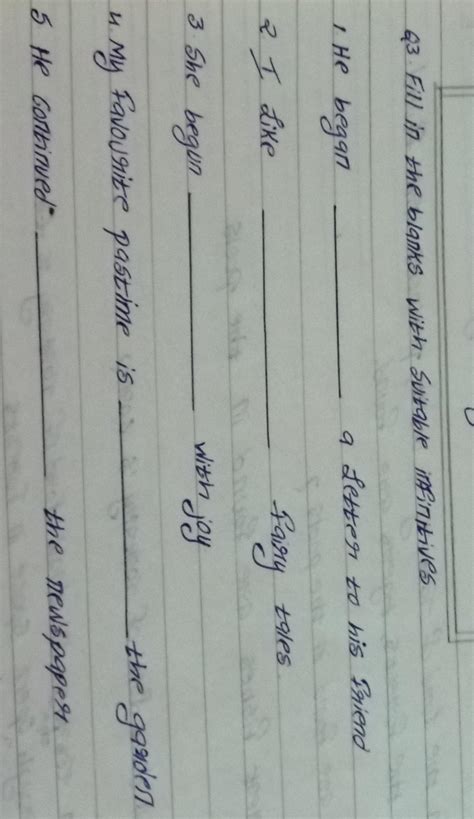 Q3. Fill in the blanks with suitable infinitives.
1. He began ________ a letter to his friend
2 I Like ________ Fairy tales
3 She begun ________ with joy
4. My Favourite pastime is ________ the garden
5 He continued ________ the newspaper.